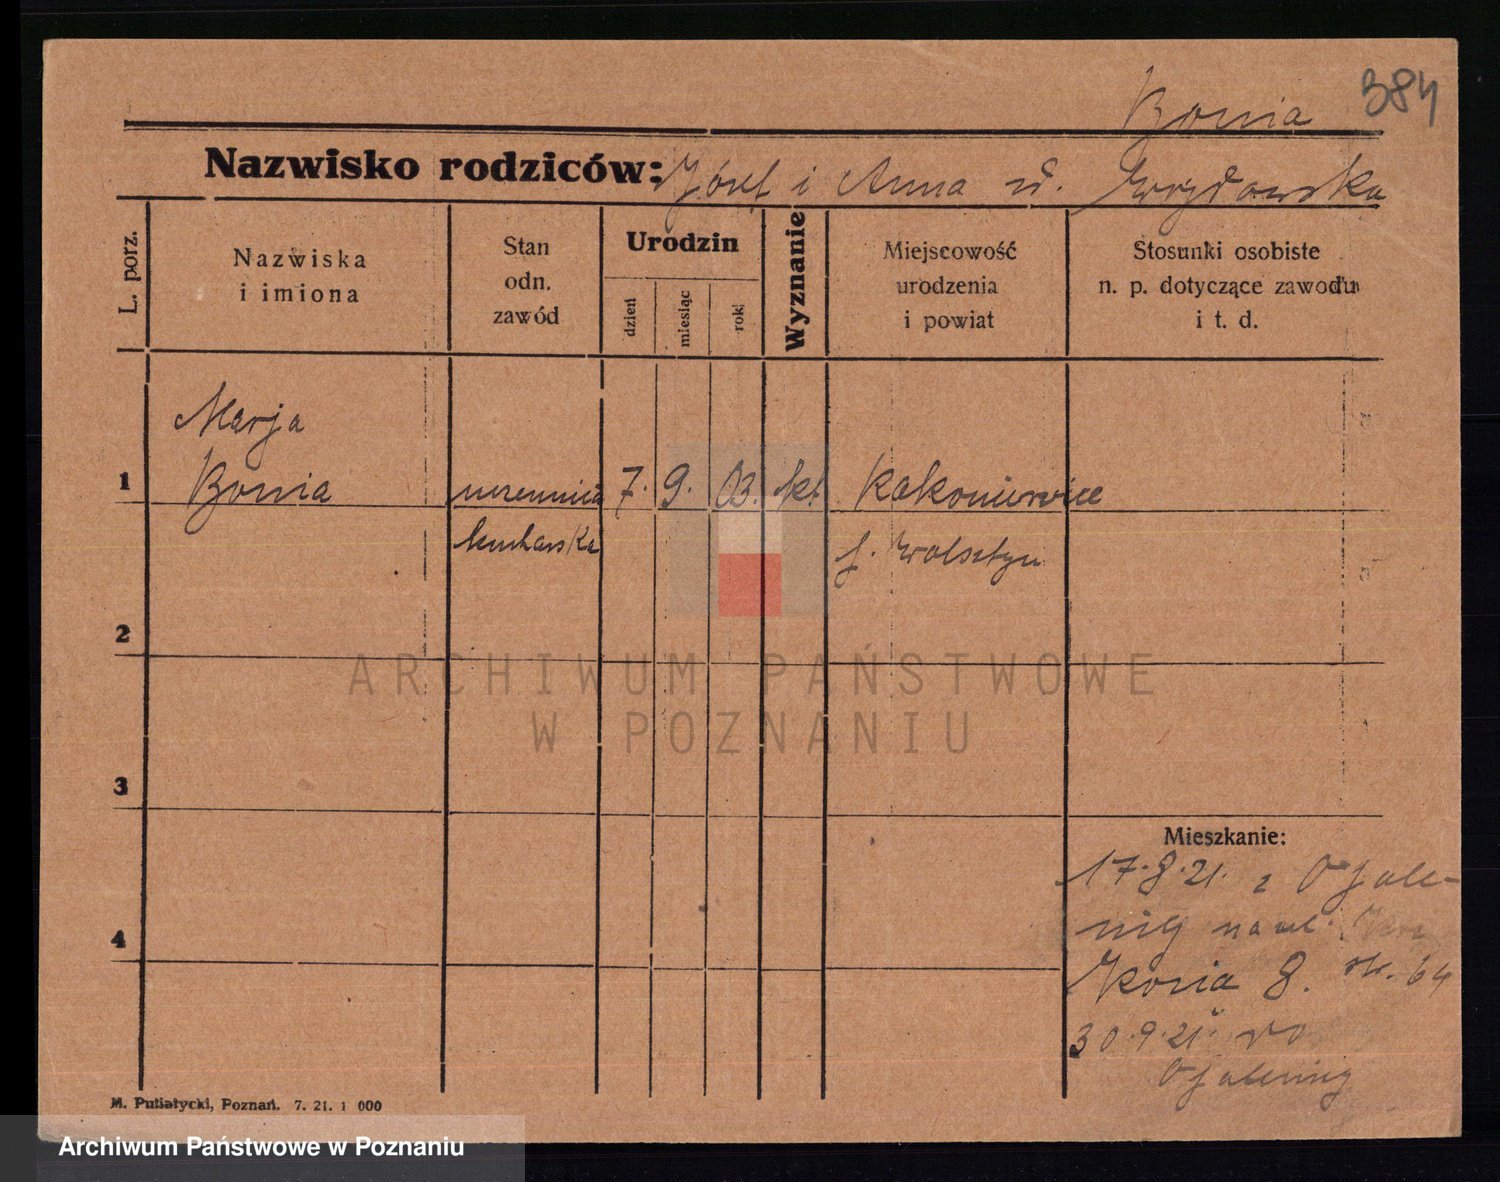 Bonia 384
Nazwisko rodziców: Józef i Anna d.
L. porz.
Nazwiska
i imiona
Stan
odn.
zawód
Urodzin
dzień
miesiąc
rok
Wyznanie
Miejscowość
urodzenia
i powiat
Stosunki osobiste
n. p. dotyczące zawodu
i t. d.
Marja
1 Bonia uczennica 7. 9. 03. kt. Kakoniewice
kucharska p. Wolsztyn
2
ARCHIWUM PAŃSTWOWE
W POZNANIU
3
Mieszkanie:
17.8.21. z Opale-
4 nicy na ul.
8. str. 64
30.9.21. do
Opalenicy
M. Putiatycki, Poznań. 7. 21. 1 000
Archiwum Państwowe w Poznaniu